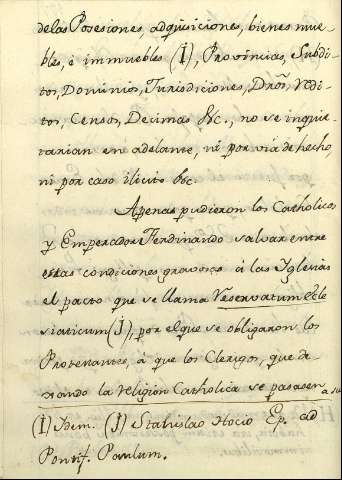 delas Posesiones, adquisiciones, bienes mue-
bles, è immuebles (I), Provincias, Subdi-
tos, Dominios, Jurisdiciones, Dros, Redi-
tos, Censos, Decimas &c., no se inquie-
tarian en adelante, ni por via de hecho,
ni por caso ilicito &c.
Apenas pudieron los Catholicos
y Emperador Ferdinando salvar entre
estas condiciones gravosas à las Yglesias
el pacto que se llama Reservatum Ecle
siaticum (J), por el que se obligaron los
Protestantes, à que los Clerigos, que de-
xando la religion Catholica se pasasen
a su
(I) Ydem. (J) Stanislao Hocio Ep. ad
Pontif. Paulum.